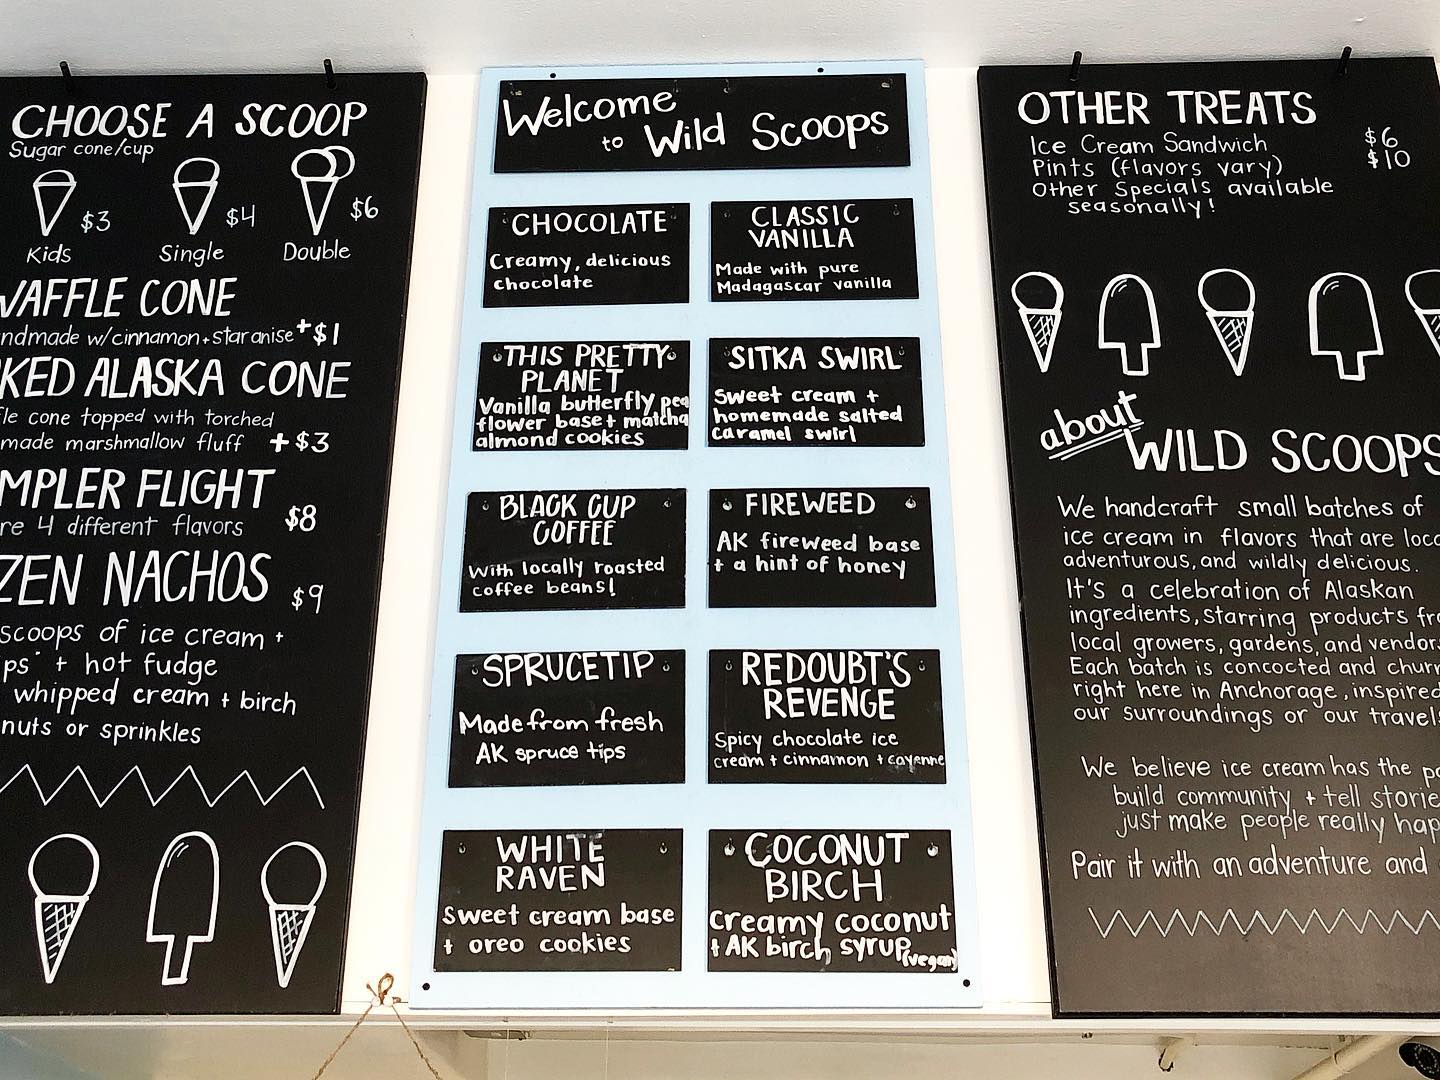 CHOOSE A SCOOP
Sugar cone/cup
$3
$4
$6
Kids
Single
Double
WAFFLE CONE
ndmade w/cinnamon+star anise +$1
KED ALASKA CONE
fle cone topped with torched
made marshmallow fluff +$3
MPLER FLIGHT
re 4 different flavors $8
ZEN NACHOS
$9
scoops of ice cream +
ps" + hot fudge
whipped cream + birch
nuts or sprinkles
Welcome
to Wild Scoops
CHOCOLATE
Creamy, delicious
chocolate
CLASSIC
VANILLA
Made with pure
Madagascar vanilla
THIS PRETTY
PLANET
Vanilla butterfly pea
flower base + matcha
almond cookies
SITKA SWIRL
Sweet cream +
homemade salted
caramel swirl
BLACK CUP
COFFEE
With locally roasted
coffee beans!
FIREWEED
AK fireweed base
+ a hint of honey
SPRUCETIP
Made from fresh
AK spruce tips
REDOUBT'S
REVENGE
Spicy chocolate ice
cream + cinnamon + cayenne
WHITE
RAVEN
Sweet cream base
+ oreo cookies
COCONUT
BIRCH
Creamy coconut
+ AK birch syrup
(vegan)
OTHER TREATS
Ice Cream Sandwich $6
Pints (flavors vary) $10
Other Specials available
seasonally!
about
WILD SCOOPS
We handcraft small batches of
ice cream in flavors that are loca
adventurous, and wildly delicious.
It's a celebration of Alaskan
ingredients, starring products fro
local growers, gardens, and vendors
Each batch is concocted and churn
right here in Anchorage, inspired
our surroundings or our travels
We believe ice cream has the po
build community + tell storie
just make people really hap
Pair it with an adventure and